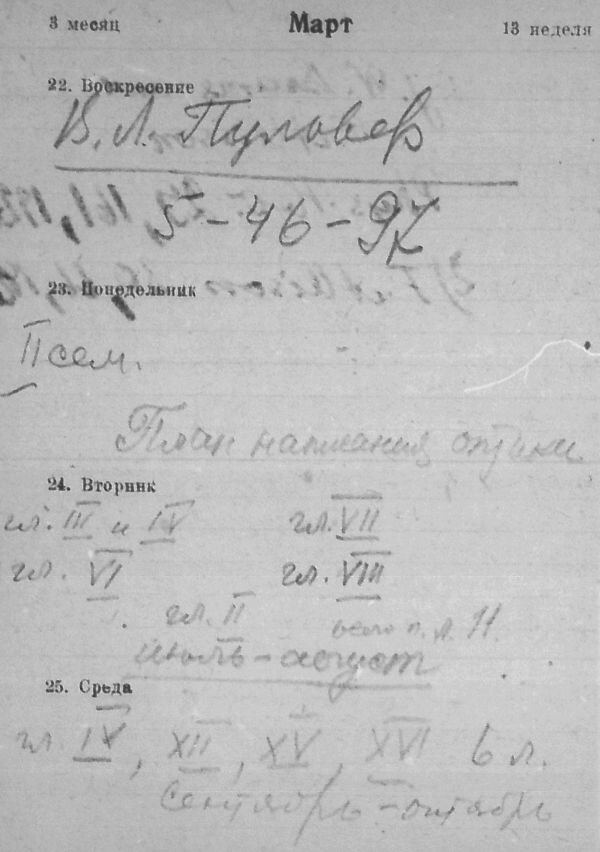 3 месяц Март 13 неделя
22. Воскресение
В. Л. Пуловер
5-46-97
23. Понедельник
II сем.
План написания оптики
24. Вторник
гл. III и IV гл. VII
гл. VI гл. VIII
гл. II всего п. л. 11.
июль-август
25. Среда
гл. IV, XII, XV, XVI 6 л.
Сентябрь-октябрь